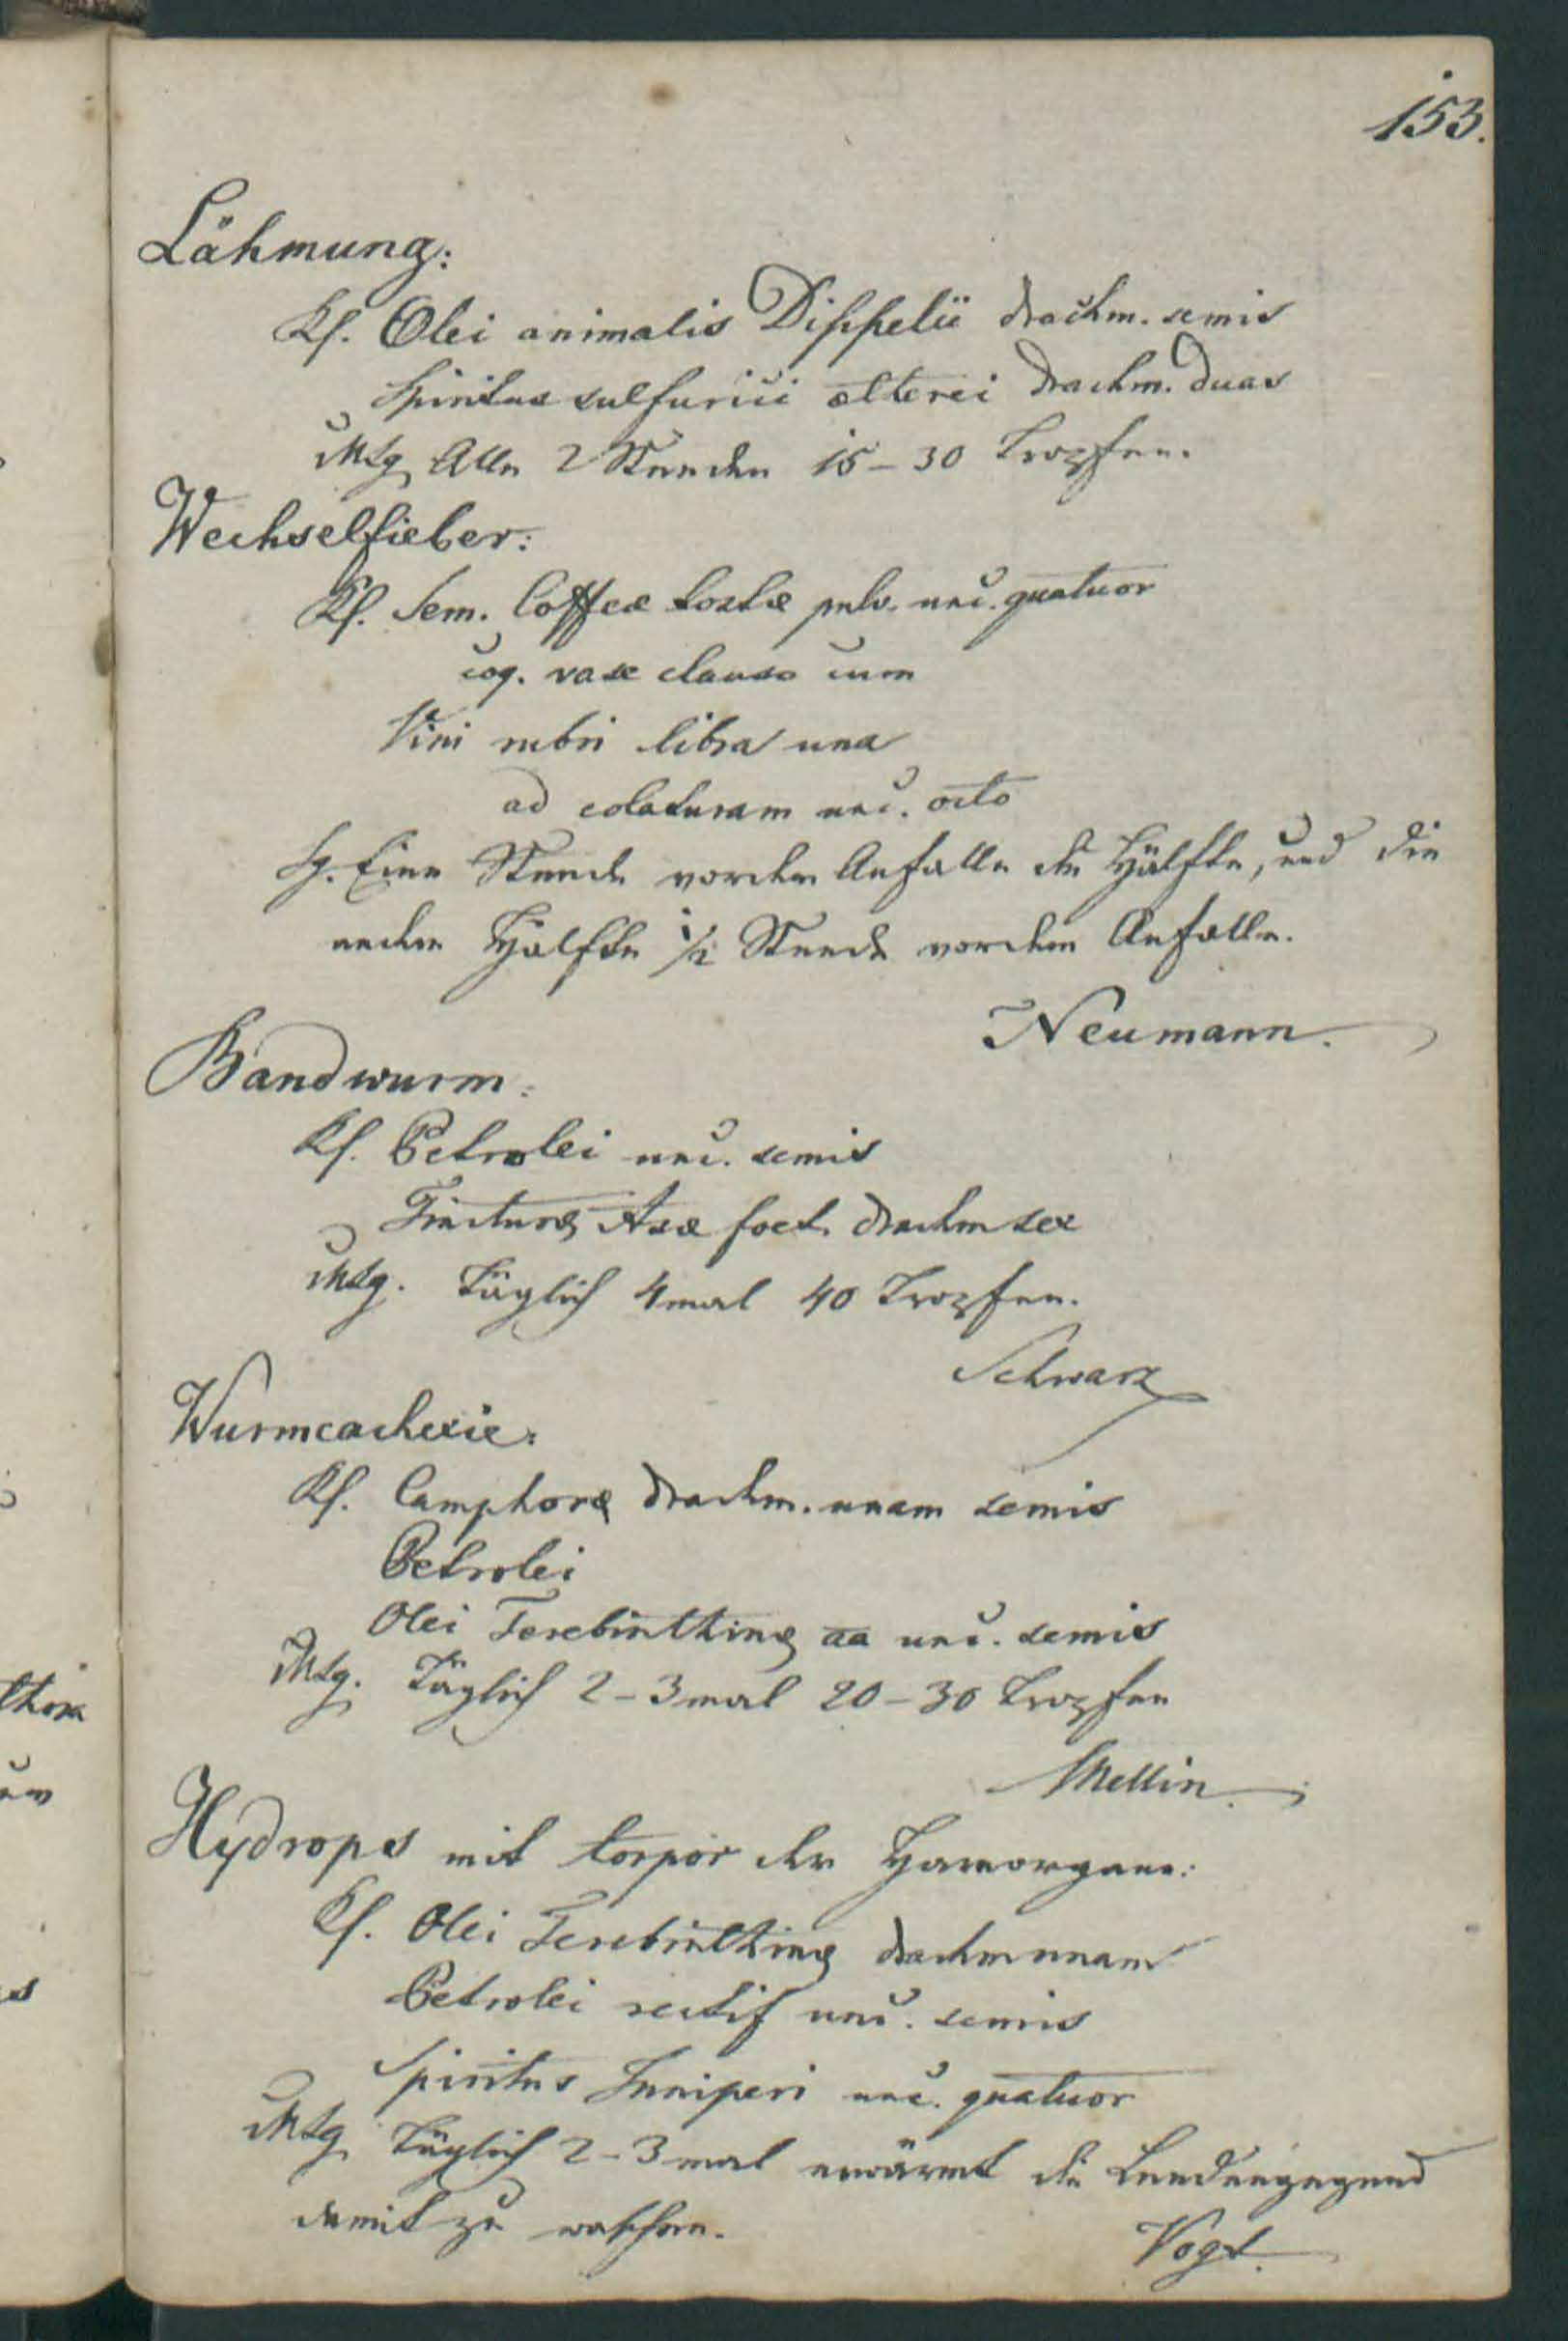 153.
Lähmung:
Rf. Olei animalis Dippelii drachm. semis
Spiritus sulfurici ætherei drachm. duas
MSg Alle 2 Stunden 15-30 Tropfen.
Wechselfieber:
Rf. Sem. Coffeæ tostæ pulv. unc. quatuor
coq. vase clauso cum
Vini rubri libra una
ad colaturam unc. octo
Sg. Eine Stunde vor dem Anfalle die Hälfte, und die
andere Hälfte 1/2 Stunde vor dem Anfalle.
Neumann.
Bandwurm:
Rf. Petrolei unc. semis
Tincturæ Asæ foet. drachm sex
MSg. Täglich 4mal 40 Tropfen.
Schwarz
Wurmcachexie:
Rf. Camphoræ drachm. unam semis
Petrolei
Olei Terebinthinæ aa unc. semis
MSg. Täglich 2-3mal 20-30 Tropfen
Mellin.
Hydrops mit torpor der Harnorgane:
Rf. Olei Terebinthinæ drachm unam
Petrolei rectif unc. semis
Spiritus Juniperi unc. quatuor
MSg Täglich 2-3mal erwärmt die Lendengegend
damit zu waschen.
Vogt.